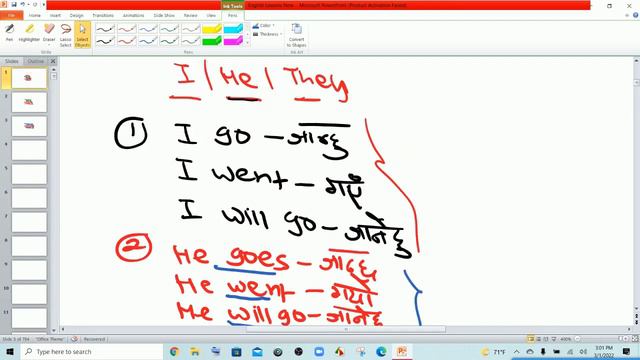 English Lessons New... - Microsoft PowerPoint (Product Activation Failed)
Ink Tools
File Home Insert Design Transitions Animations Slide Show Review View Pens
Pen Highlighter Eraser Lasso Select Select Objects
Color
Thickness
Convert to Shapes
Write Pens Ink Art
Slides Outline
I | He | They
① I go - जान्छु
I went - गएँ
I will go - जानेछु
② He goes - जान्छ
He went - गयो
He will go - जानेछ
Slide 3 of 794 "Office Theme" 400%
Type here to search
71°F
3:01 PM
3/1/2022